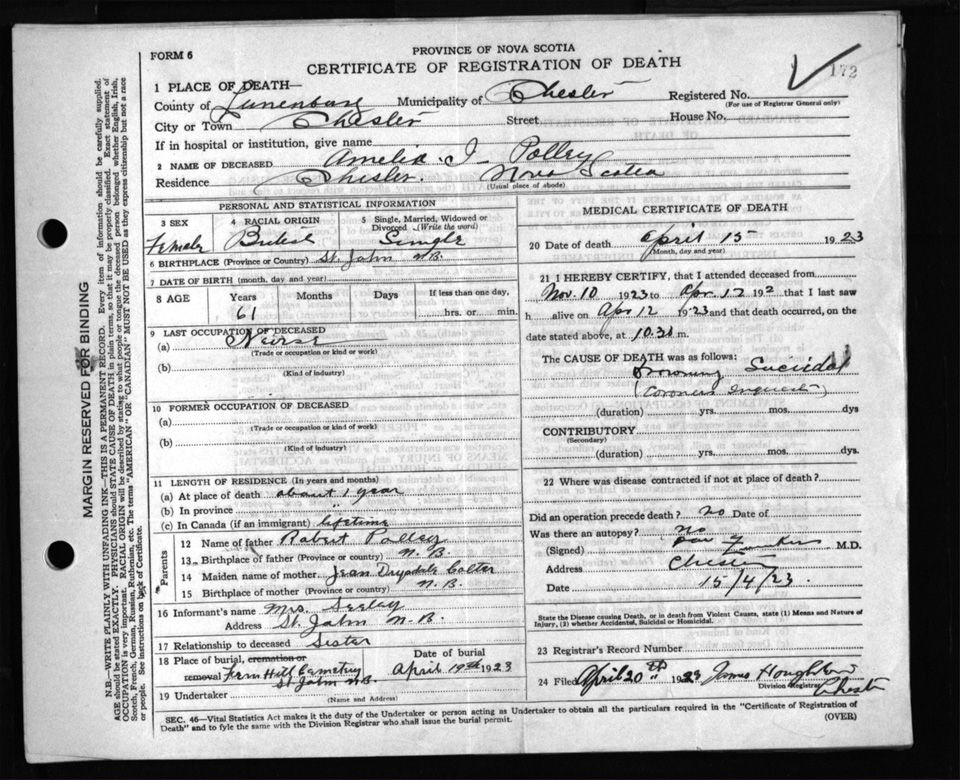 FORM 6
PROVINCE OF NOVA SCOTIA
CERTIFICATE OF REGISTRATION OF DEATH
172
1 PLACE OF DEATH—
County of Lunenburg Municipality of Chester Registered No.
(For use of Registrar General only)
City or Town Chester Street House No.
If in hospital or institution, give name
2 NAME OF DECEASED Amelia I Polley
Residence Chester. Nova Scotia
(Usual place of abode)
PERSONAL AND STATISTICAL INFORMATION
3 SEX 4 RACIAL ORIGIN 5 Single, Married, Widowed or Divorced (Write the word)
Female British Single
6 BIRTHPLACE (Province or Country) St. John N.B.
7 DATE OF BIRTH (month, day and year)
8 AGE Years Months Days If less than one day,
61 hrs. or min.
9 LAST OCCUPATION OF DECEASED
(a) Nurse
(Trade or occupation or kind or work)
(b)
(Kind of industry)
10 FORMER OCCUPATION OF DECEASED
(a)
(Trade or occupation or kind of work)
(b)
(Kind of industry)
11 LENGTH OF RESIDENCE (In years and months)
(a) At place of death about 1 year
(b) In province "
(c) In Canada (if an immigrant) lifetime
Parents
12 Name of father Robert Polley
13 Birthplace of father (Province or country) N.B.
14 Maiden name of mother Jean Drysdale
15 Birthplace of mother (Province or country) N.B.
16 Informant's name Mrs. Seeley
Address St. John N.B.
17 Relationship to deceased Sister
18 Place of burial, cremation or removal Date of burial
Fern Hill Cemetery St John N.B. April 19th 1923
19 Undertaker
(Name and Address)
MEDICAL CERTIFICATE OF DEATH
20 Date of death April 15 1923
(Month, day and year)
21 I HEREBY CERTIFY, that I attended deceased from
Nov. 10 1923 to Apr. 12 192 that I last saw
h alive on Apr 12 1923 and that death occurred, on the
date stated above, at 10.30 m.
The CAUSE OF DEATH was as follows:
Drowning Suicidal
(Coroners inquest)
(duration) yrs. mos. dys
CONTRIBUTORY
(Secondary)
(duration) yrs. mos. dys.
22 Where was disease contracted if not at place of death?
Did an operation precede death? no Date of
Was there an autopsy? No
(Signed) M.D.
Address Chester
Date 15/4/23.
State the Disease causing Death, or in death from Violent Causes, state (1) Means and Nature of
Injury, (2) whether Accidental, Suicidal or Homicidal.
23 Registrar's Record Number
24 Filed April 20th 1923 James Houghton
Division Registrar
Chester
SEC. 46—Vital Statistics Act makes it the duty of the Undertaker or person acting as Undertaker to obtain all the particulars required in the "Certificate of Registration of
Death" and to fyle the same with the Division Registrar who shall issue the burial permit.
(OVER)
MARGIN RESERVED FOR BINDING
N.B.—WRITE PLAINLY WITH UNFADING INK—THIS IS A PERMANENT RECORD. Every item of information should be carefully supplied.
AGE should be stated EXACTLY. PHYSICIANS should STATE CAUSE OF DEATH in plain terms, so that it may be properly classified. Exact statement of
OCCUPATION is very important. RACIAL ORIGIN will be described by stating to what people or tongue the deceased person belonged whether English, Irish,
Scotch, French, German, Russian, Ruthenian, etc. The terms "AMERICAN" OR "CANADIAN" MUST NOT BE USED as they express citizenship but not a race
or people. See instructions on back of Certificate.